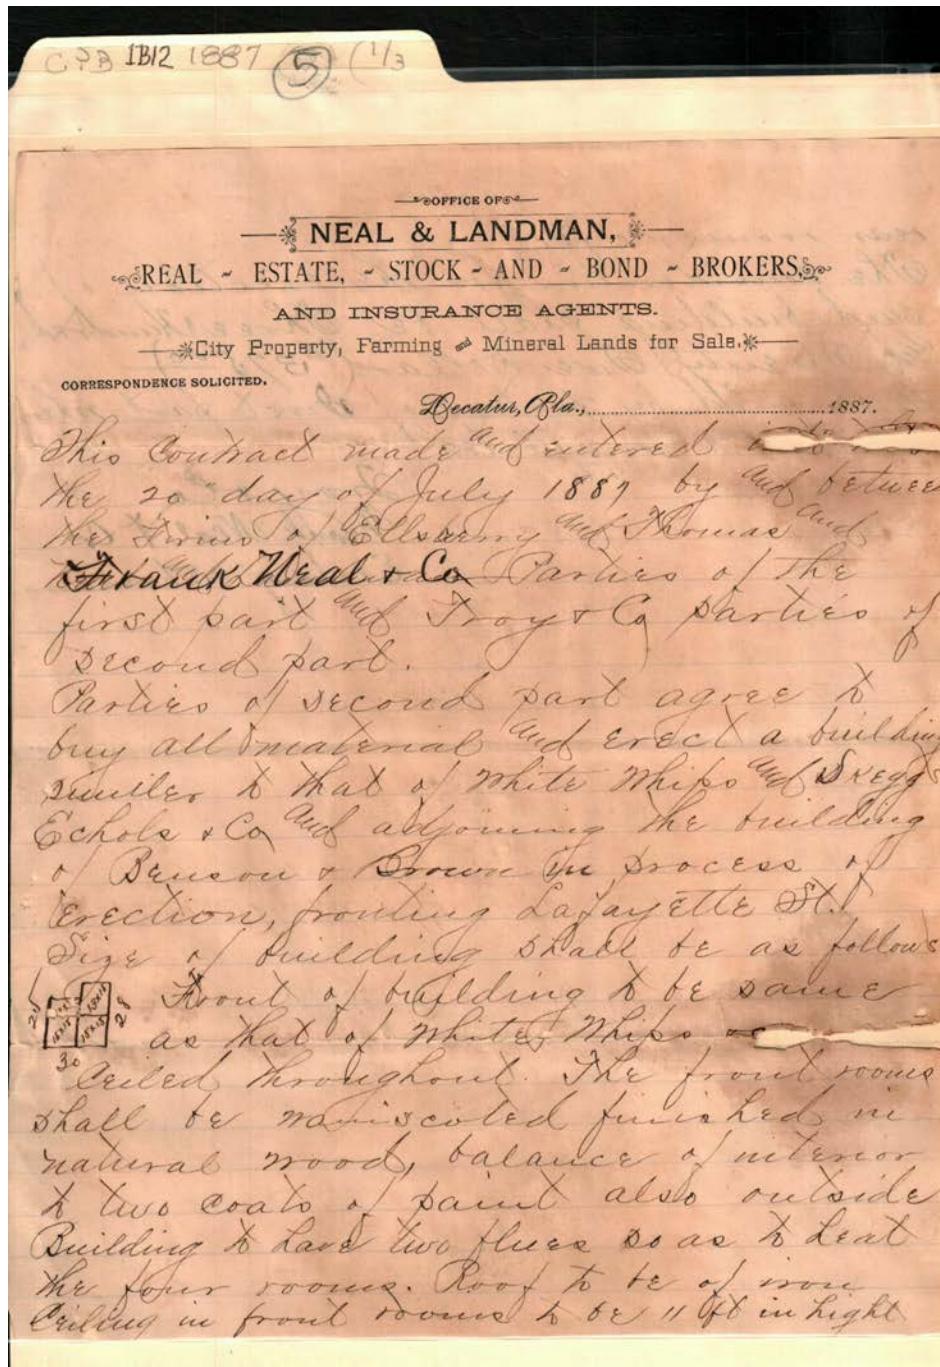 C&B 1B12 1887 5 (1/3
OFFICE OF
NEAL & LANDMAN,
REAL ~ ESTATE, ~ STOCK ~ AND ~ BOND ~ BROKERS,
AND INSURANCE AGENTS.
City Property, Farming and Mineral Lands for Sale.
CORRESPONDENCE SOLICITED.
Decatur, Ala., 1887.
This Contract made and entered into
the 20 day of July 1887 by and betwee
the Firm of Ellsberry and Thomas and
Frank Neal & Co Parties of the
first part and Troy & Co parties of
second part.
Parties of second part agree to
buy all material and erect a building
similer to that of White Whips and Skeggs
Echols & Co and adjoining the building
of Benson & Brown in process of
Erection, fronting Lafayette St.
Size of building shall be as follows
Front of building to be same
28 15x15 28
as that of White, Whips
30
Ceiled throughout. The front rooms
shall be wainscoted finished in
natural wood, balance of interior
to two coats of paint also outside
Building to have two flues so as to heat
the four rooms. Roof to be of iron
Ceiling in front rooms to be 11 ft in hight